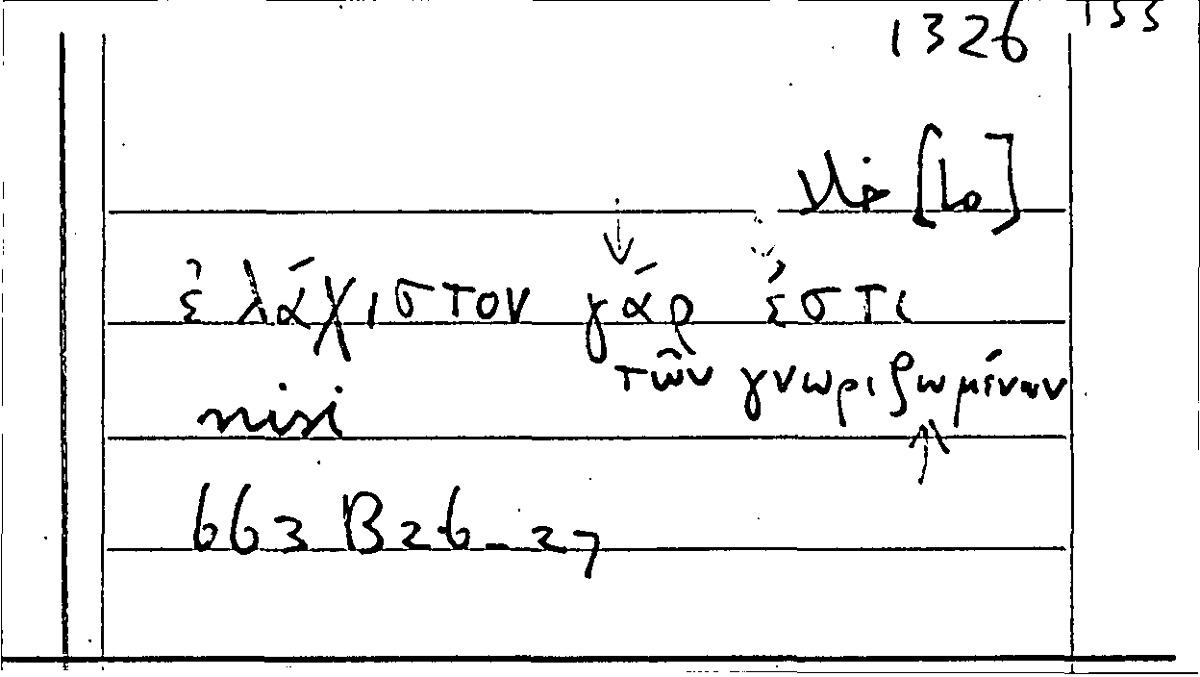 1326 133
[Lo]
↓
ἐλάχιστον γάρ ἐστι
τῶν γνωριζωμένων
nisi ↑
663 B26-27